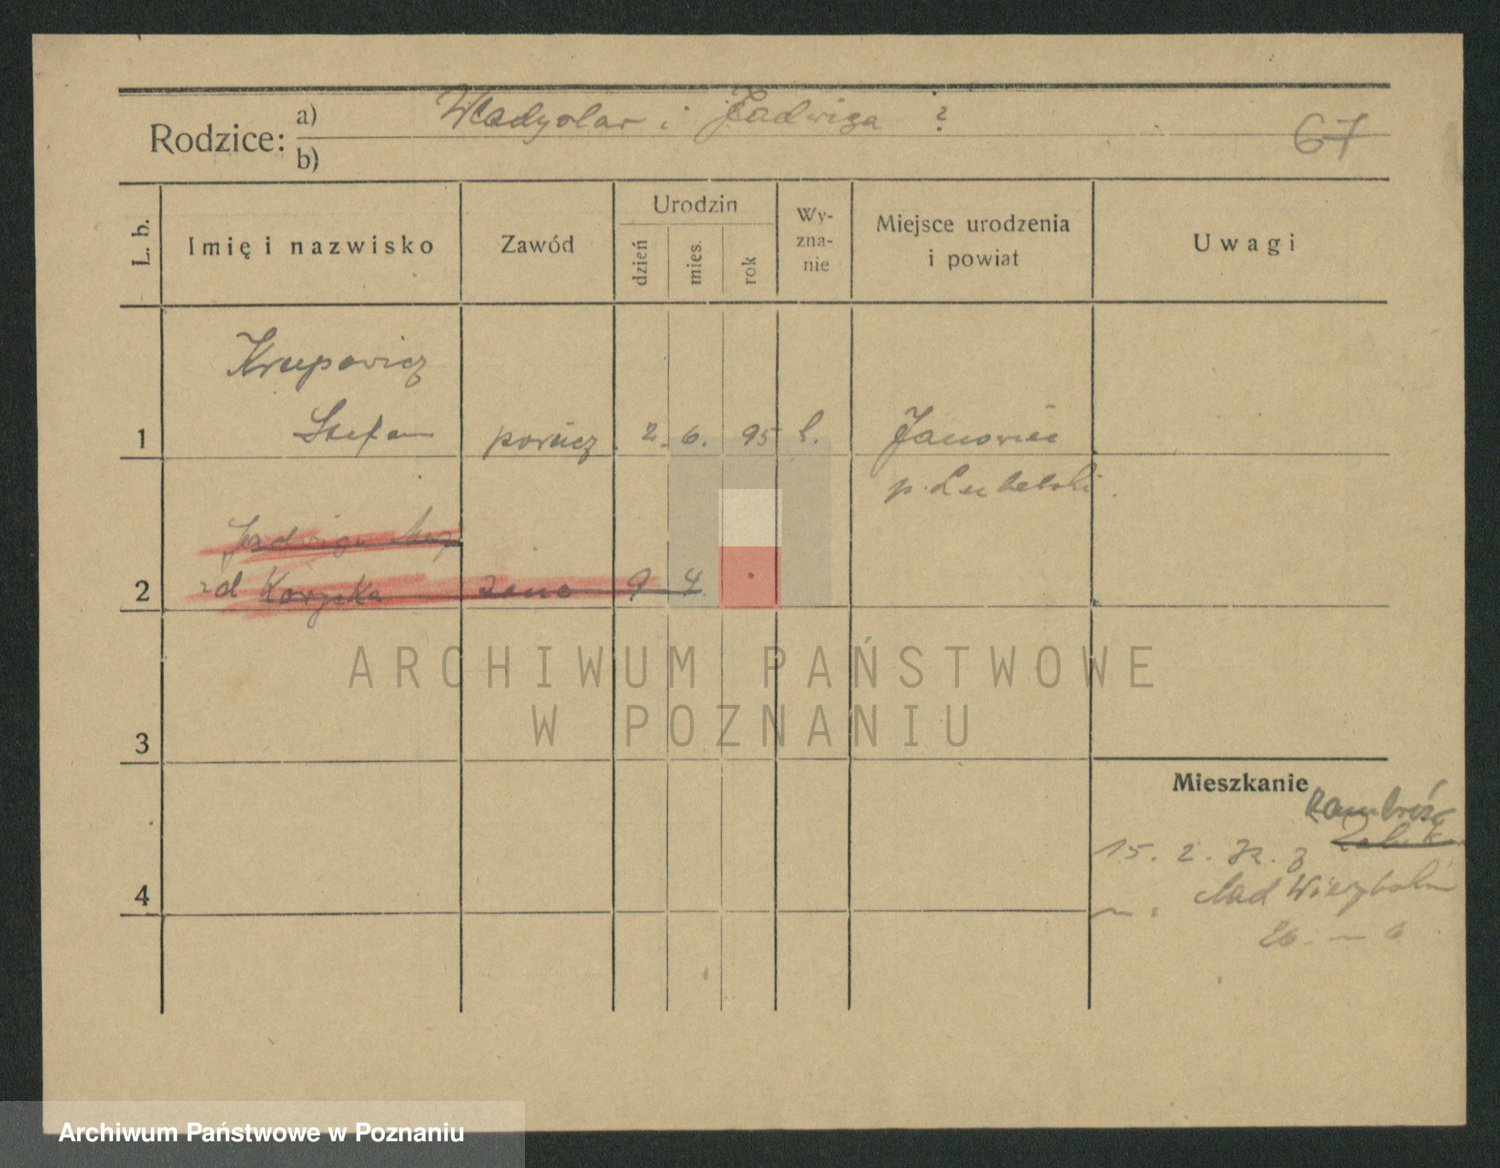 Rodzice: a) Władysław i Jadwiga ?
b)
67
L. b.
Imię i nazwisko
Zawód
Urodzin
dzień
mies.
rok
Wy-
zna-
nie
Miejsce urodzenia
i powiat
Uwagi
Krupowicz
1 Stefan porucz. 2. 6. 95 Janowiec
p. Lubelski.
Jadwiga
2 żona 9 4
3
Mieszkanie
15. 2. 32. z
4 Nad Wierzbakiem
26 — 6
ARCHIWUM PAŃSTWOWE
W POZNANIU
Archiwum Państwowe w Poznaniu